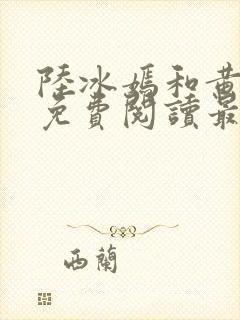 陸冰嫣和黄
免費閱讀最
西蘭